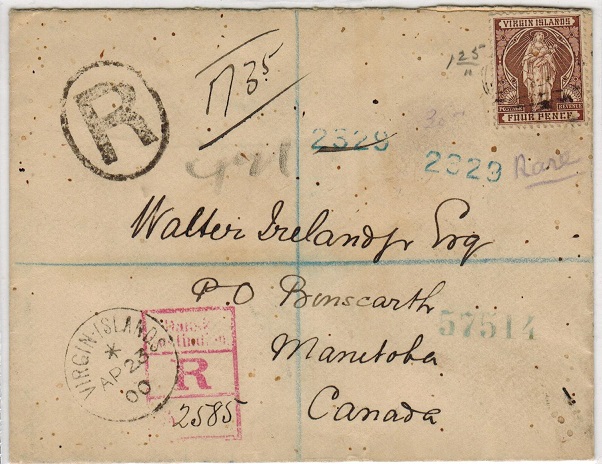 VIRGIN ISLANDS
POSTAGE REVENUE
FOUR PENCE
R
125
2329
2329
Rare
Walter Ireland Jr Esq
PO Binscarth
57514
Manitoba
Canada
VIRGIN-ISLANDS
*
AP 23
00
R
2585